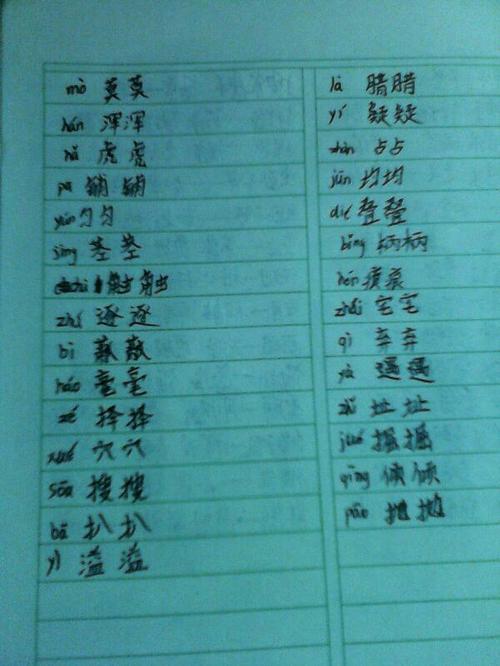 mò 莫莫
hún 浑浑
hǔ 虎虎
匀匀
jīng 茎茎
触触
zhú 逐逐
bì 蔽蔽
háo 毫毫
zé 择择
xué 穴穴
sōu 搜搜
bā 扒扒
yì 溢溢
là 腊腊
yí 疑疑
zhàn 占占
jūn 均均
dié 叠叠
bǐng 柄柄
hén 痕痕
zhái 宅宅
qì 弃弃
yù 遇遇
zhǐ 址址
jué 掘掘
qīng 倾倾
pāo 抛抛